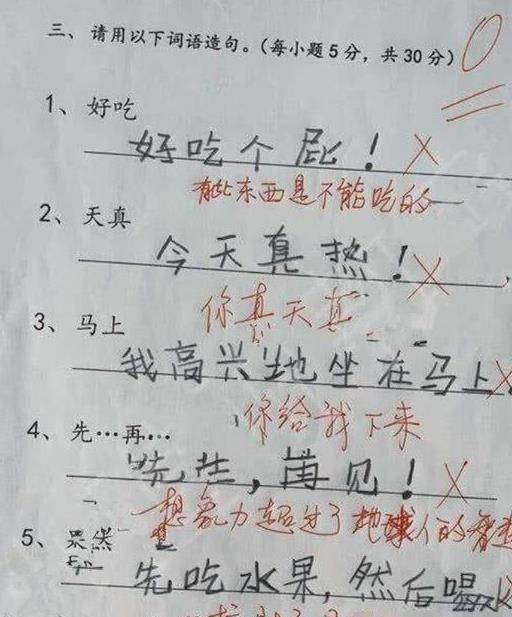 三、请用以下词语造句。（每小题5分，共30分） 0
1、好吃
好吃个屁！
有些东西是不能吃的
2、天真
今天真热！
你真天真
3、马上
我高兴地坐在马上
你给我下来
4、先…再…
先生，再见！
想象力超过了地球人的智
5、果然
先吃水果，然后喝